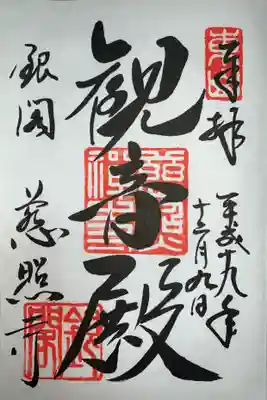 奉拝
平成十九年
十二月九日
観音殿
銀閣 慈照寺